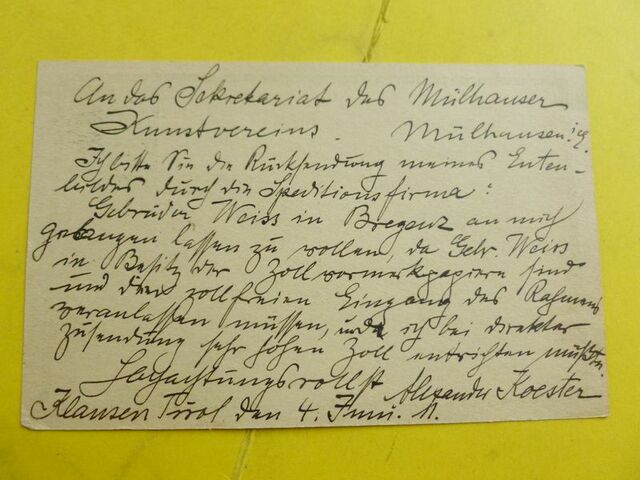 An das Sekretariat des Mülhauser
Kunstvereins. Mülhausen i/E.
Ich bitte Sie die Rücksendung meines Enten-
bildes durch die Speditionsfirma:
Gebrüder Weiss in Bregenz an mich
gelangen lassen zu wollen, da Gebr. Weiss
in Besitz der Zollvormerkpapiere sind
und den zollfreien Eingang des Rahmens
veranlassen müssen, und ich bei direkter
Zusendung sehr hohen Zoll entrichten müßte.
Hochachtungsvollst Alexander Koester
Klausen Tirol den 4. Juni. 11.